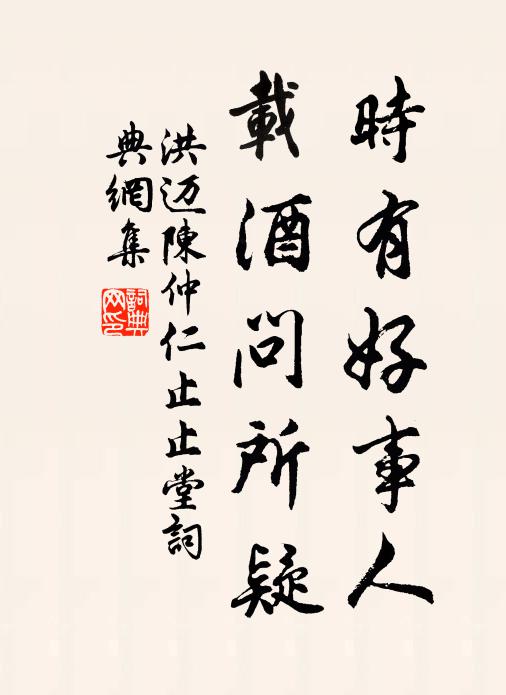 時有好事人
載酒問所疑
洪迈陳仲仁止止堂詞
典網集
詞典网印